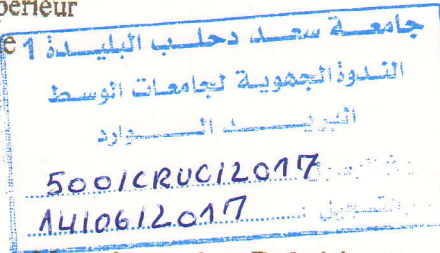 périeur
جامعة سعد دحلب البليدة 1
الندوة الجهوية لجامعات الوسط
البريد الوارد
500/CRUC/2017
14/06/2017